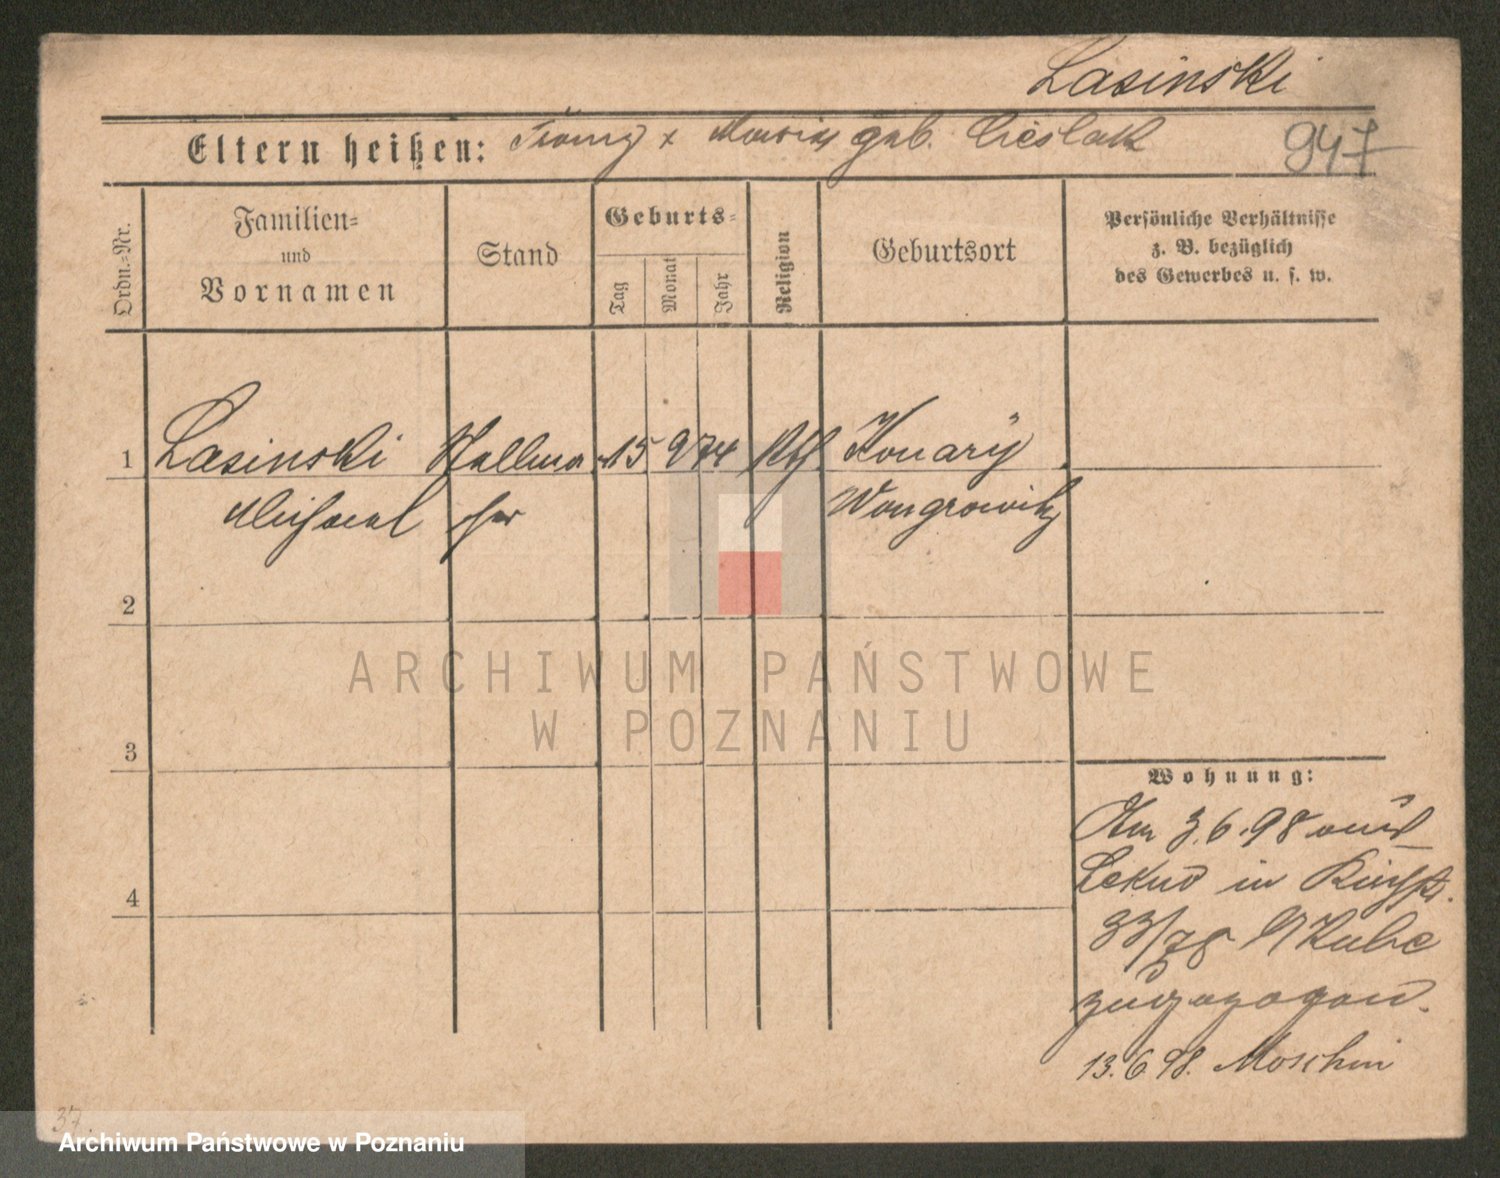 Lasinski
Eltern heißen: Franz x Maria geb. Cieslak
947
Ordn.-Nr.
Familien-
und
Vornamen
Stand
Geburts-
Tag
Monat
Jahr
Religion
Geburtsort
Persönliche Verhältnisse
z. B. bezüglich
des Gewerbes u. s. w.
1 Lasinski Stellma 15 9 74 kth Konary
Michael cher Wongrowitz
2
3
4
Wohnung:
Am 3.6.98 aus
in
33/78 Kube
zugezogen.
13.6.98. Moschin
ARCHIWUM PAŃSTWOWE
W POZNANIU
37.
Archiwum Państwowe w Poznaniu